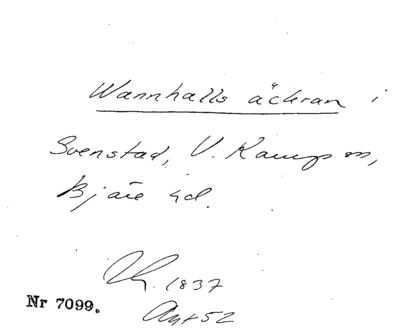 Wannhalls äckran i
Svenstad, V. Karups sn,
Bjäre hd.
1837
Nr 7099.
Ant 52